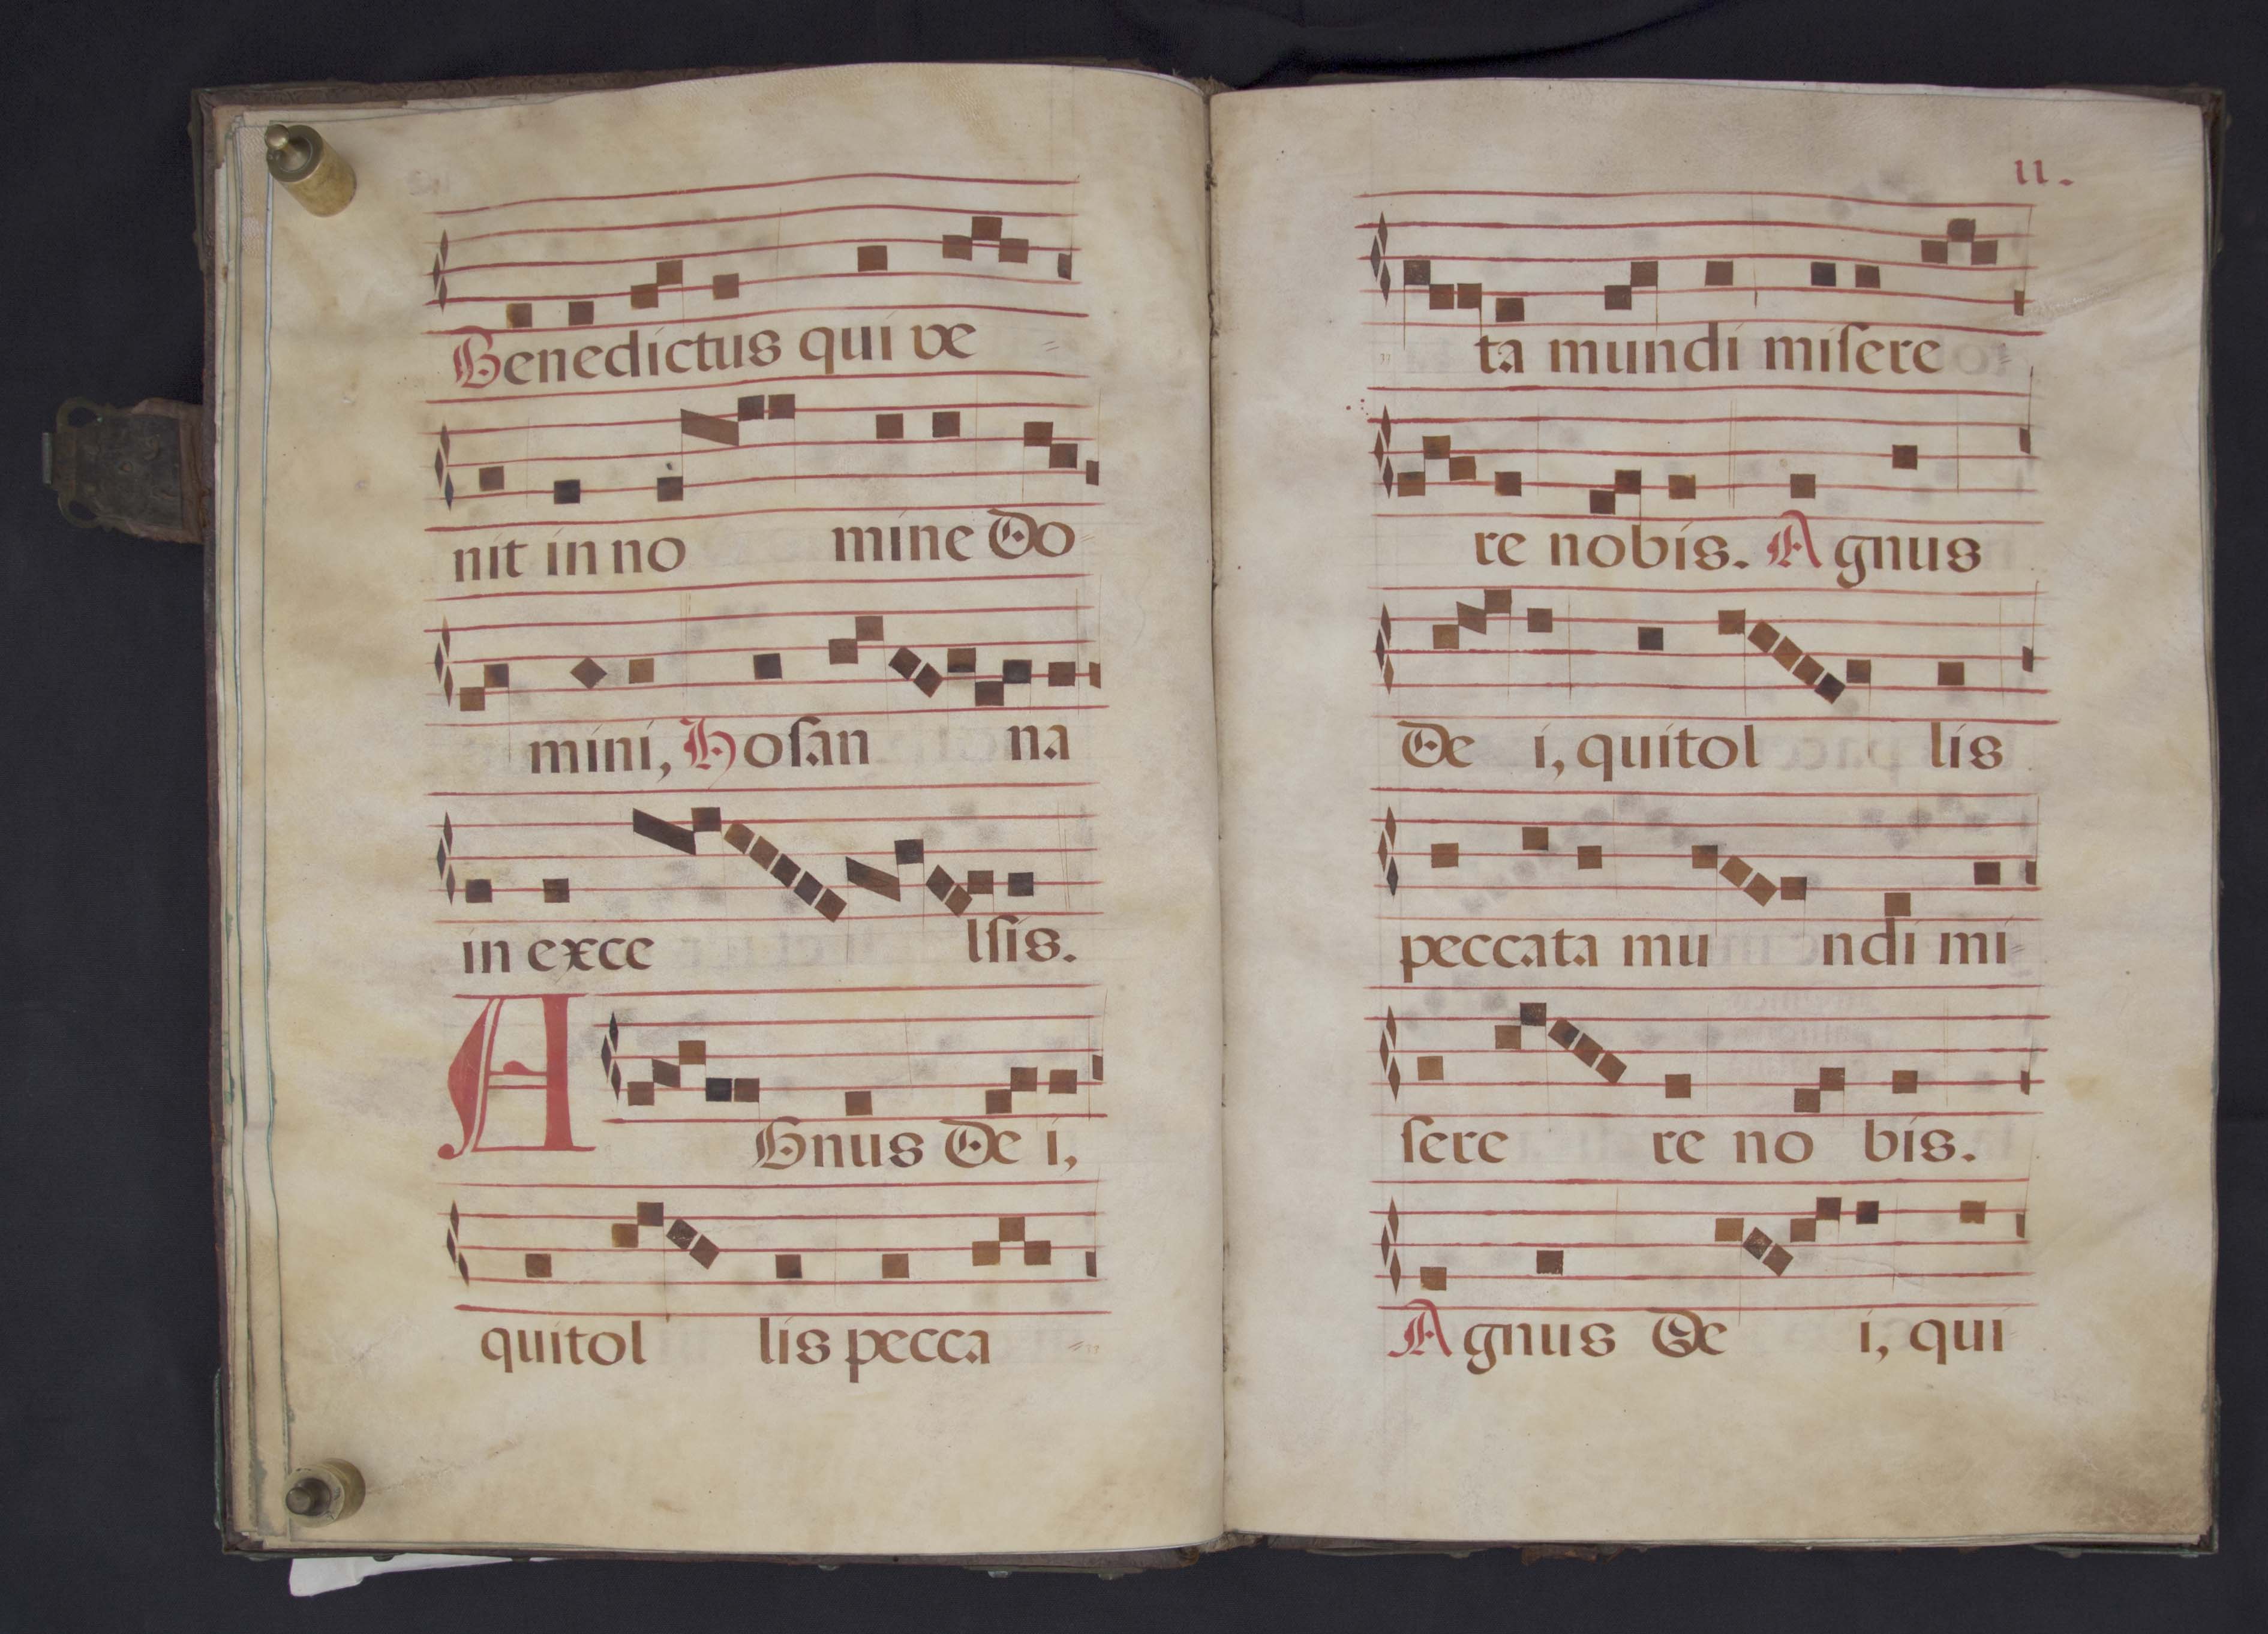 Benedictus qui ve
nit in no mine Do
mini, Hosan na
in exce lsis.
A Gnus De i,
qui tol lis pecca
11.
ta mundi misere
re nobis. Agnus
De i, qui tol lis
peccata mu ndi mi
sere re no bis.
Agnus De i, qui